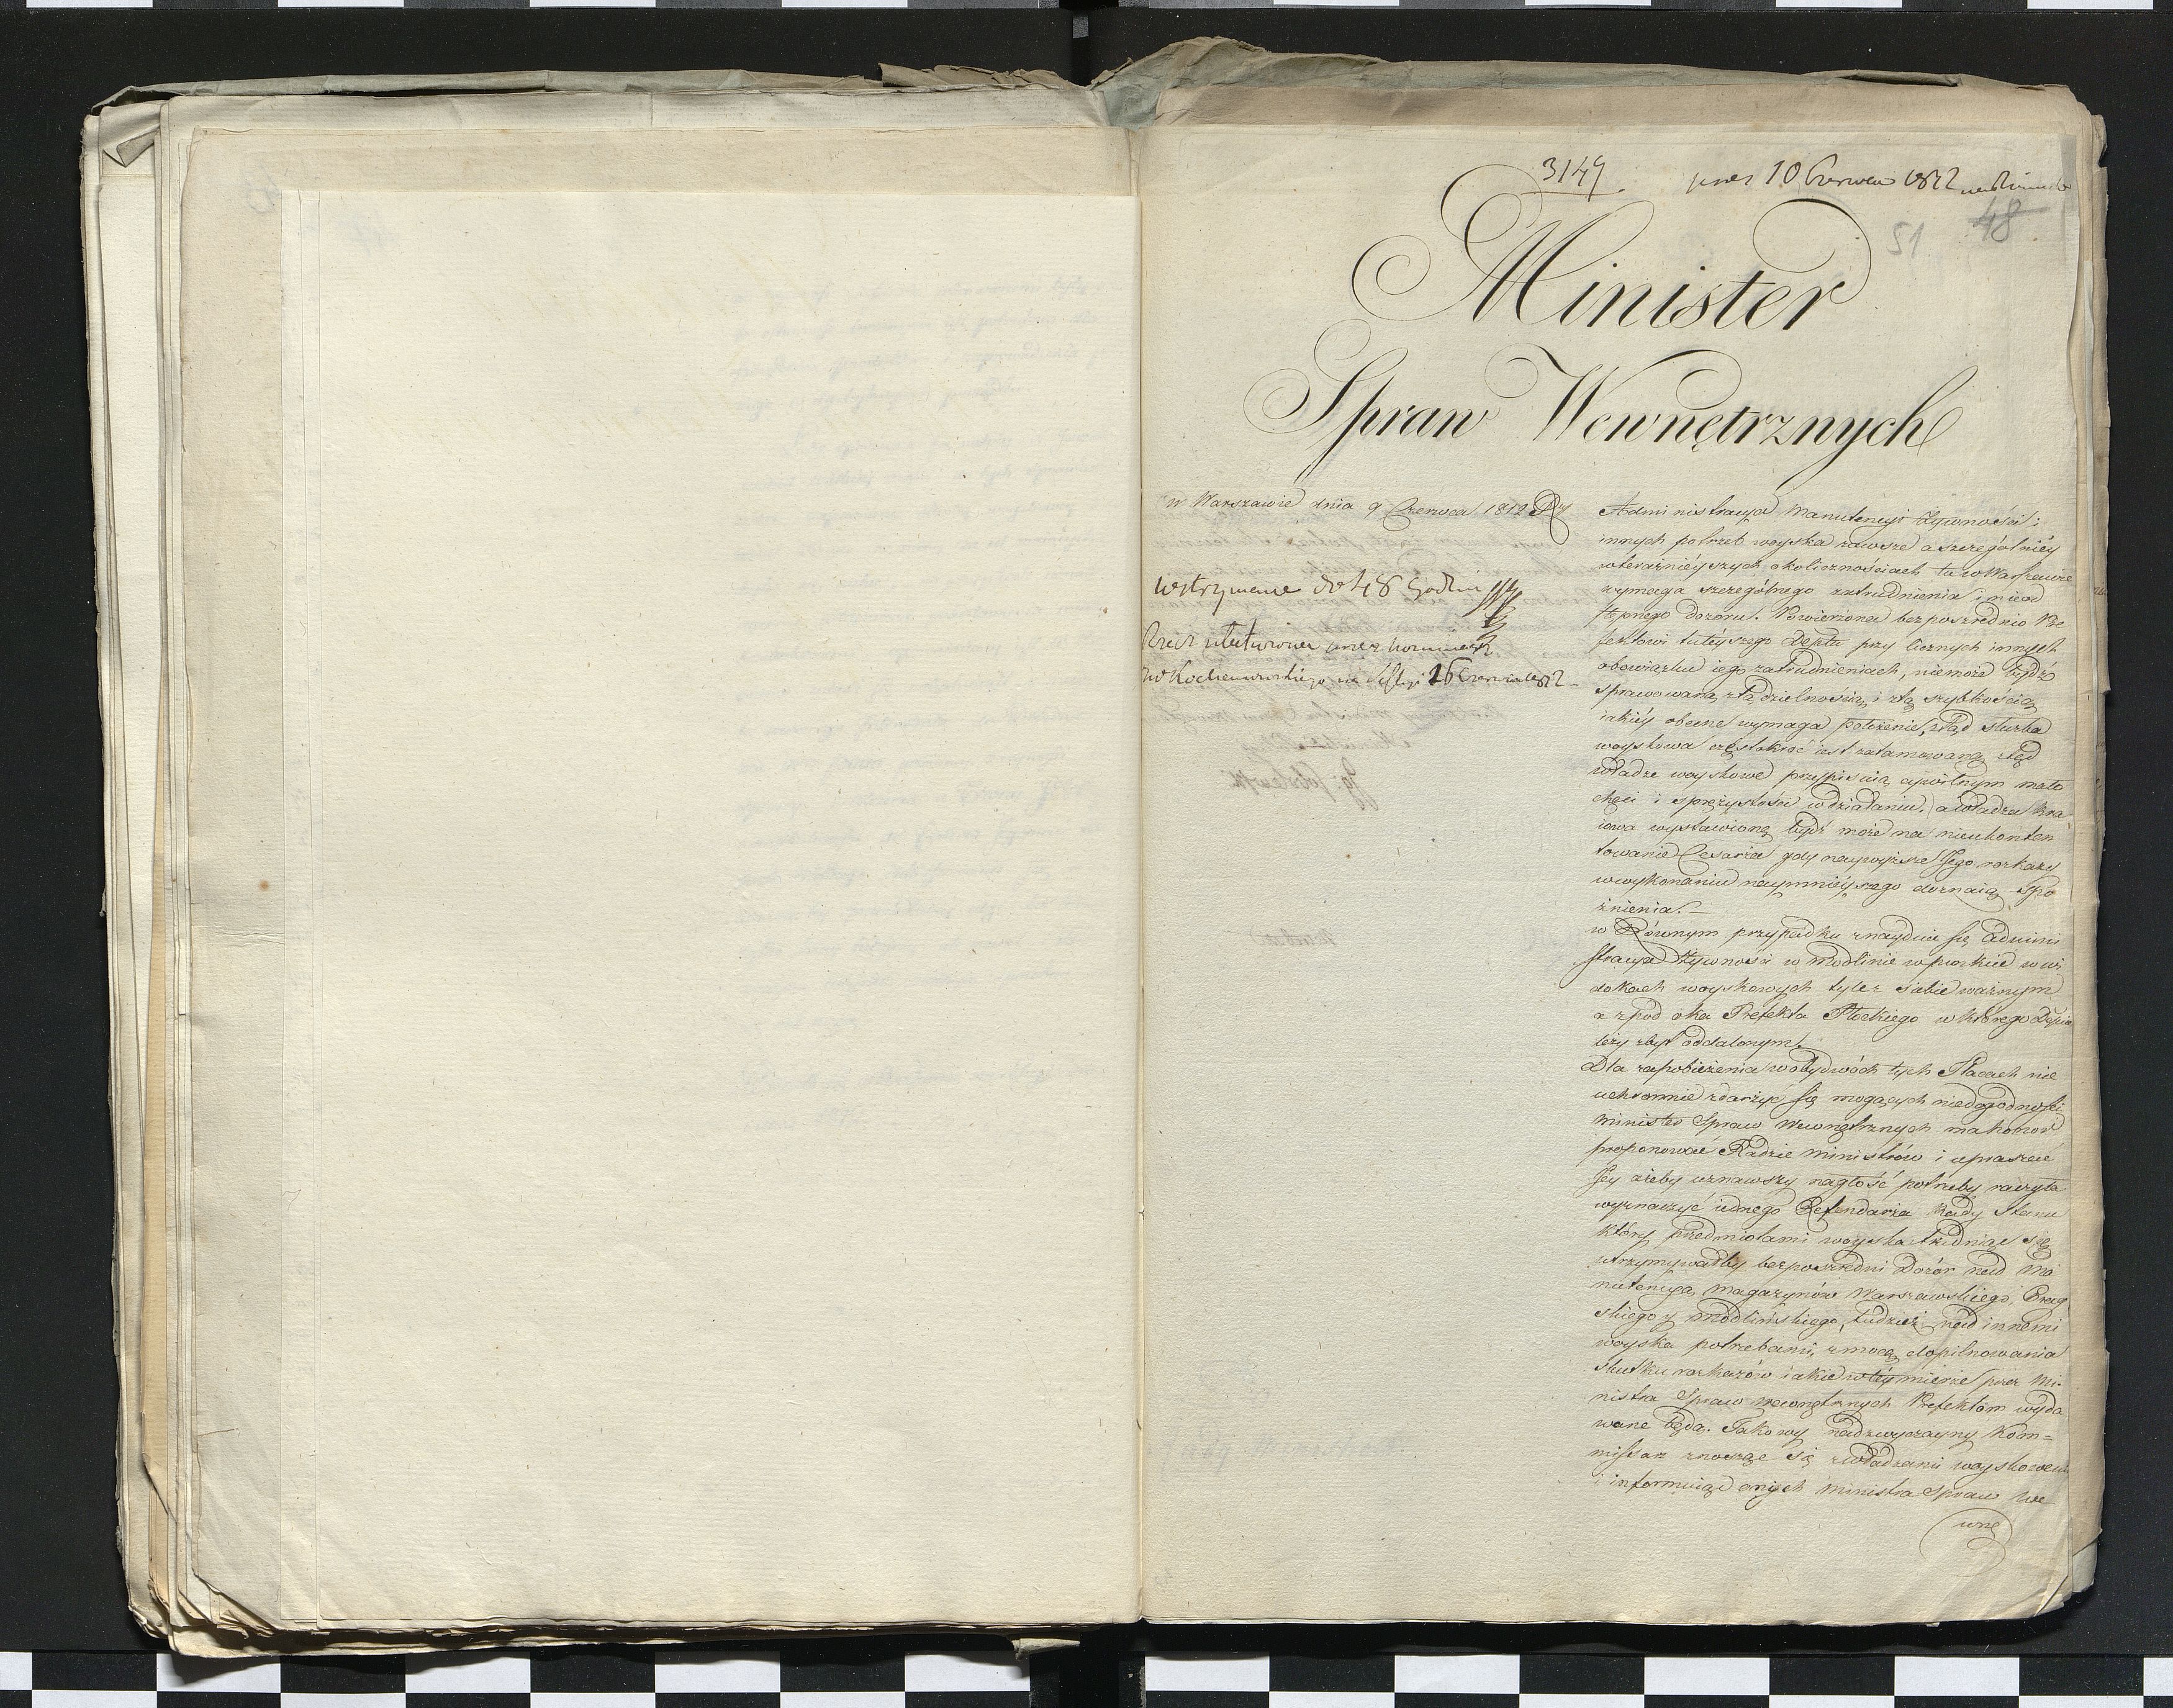 3149
10 Czerwca 1812
48
51
Minister
Spraw Wewnętrznych
w Warszawie dnia 9 Czerwca 1812 Ru
Wstrzymane do 48 Godzin
Rzecz ułatwiona przez
Kochanowskiego na Sessyi 16 Czerwca 1812
Administracya Manutencyi Żywności i
innych potrzeb woyska zawsze a szczególniéy
w teraźnieyszych okolicznościach tu w Warszawie
wymaga szczególnego zatrudnienia i nieod
stępnego dozoru. Powierzona bezpośrednio Pre
fektowi tuteyszego Deptu przy licznych innych
obowiązku iego zatrudnieniach, niemoże bydź
sprawowaną z tą dzielnością i z tą szybkością
iakiéy obecne wymaga położenie, ztąd służba
woyskowa częstokroć iest zatamowaną ztąd
władze woyskowe przypisuią cywilnym mało
chęci i sprężystości w działaniu, a władza kra
iowa wystawioną bydź może na nieukonten
towanie Cesarza gdy naywyższe Jego rozkazy
w wykonaniu naymnieyszego doznaią spó
źnienia.
w Równym przypadku znayduie się admini
stracya żywności w Modlinie w punkcie w wi
dokach woyskowych tyle z siebie ważnym
a z pod oka Prefekta Płockiego w którego Depcie
leży zbyt oddalonym.
Dla zapobieżenia w obydwóch tych Placach nie
uchronnie zdarzyć się mogących niedogodności
Minister Spraw Wewnętrznych ma honor
proponować Radzie Ministrów i upraszać
Jey ażeby uznawszy nagłość potrzeby raczyła
wyznaczyć iednego Referendarza Rady Stanu
który przedmiotami woyska trudniąc się
utrzymywałby bezpośredni Dozór nad Ma
nutencyą magazynów Warszawskiego, Prag
skiego y Modlińskiego, tudzież nad innemi
woyska potrzebami, z mocą dopilnowania
skutku rozkazów iakie w téy mierze przez Mi-
nistra Spraw wewnętrznych Prefektom wyda
wane będą. Takowy nadzwyczayny Kom-
missarz znosząc się z władzami woyskowemi
i informuiąc onych Ministra Spraw We
wnę